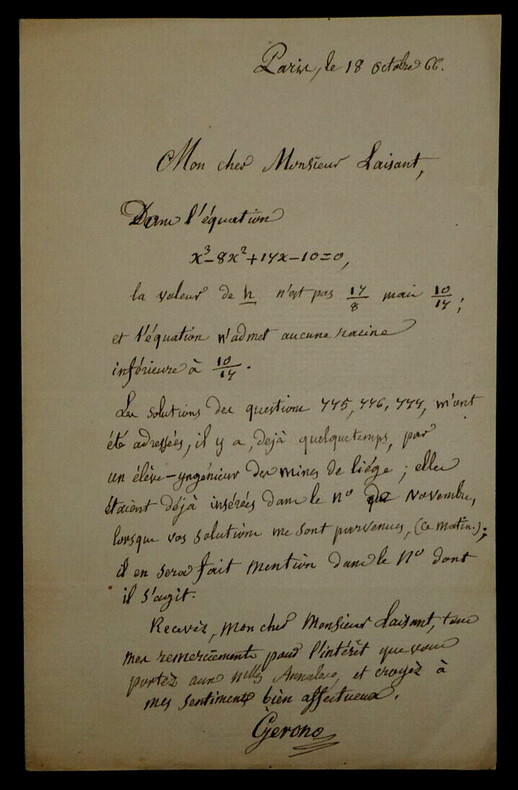 Paris, le 18 Octobre 66.
Mon cher Monsieur Laisant,
Dans l'équation
x³-8x²+17x-10=0,
la valeur de h n'est pas 17/8 mais 10/17;
et l'équation n'admet aucune racine
inférieure à 10/17.
Les solutions des questions 775, 776, 777, m'ont
été adressées, il y a, déjà quelquetemps, par
un élève-yngénieur des mines de liége; elles
étaient déjà insérées dans le n° de Novembre,
lorsque vos solutions me sont parvenues, (ce matin);
il en sera fait mention dans le N° dont
il s'agit.
Recevez, mon cher Monsieur Laisant, tous
mes remerciements pour l'intérêt que vous
portez aux nlles Annales, et croyez à
mes sentiments bien affectueux.
Gerono